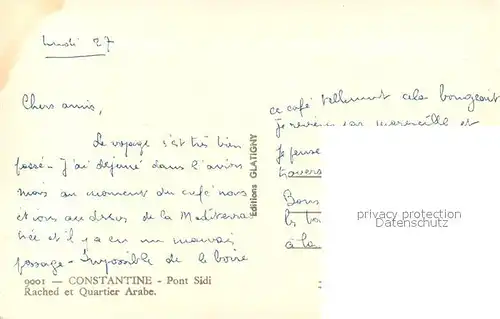 lundi 27
Chers amis,
Le voyage s'est très bien
passé - J'ai déjeuné dans l'avion
mais au moment du café nous
étions au dessus de la Mediterra
née et il y a eu un mauvais
passage - Impossible de le boire
ce café tellement cela bougeait
Je reviens sur Marseille et
Je pense
travers
Bons
les
à la
Editions GLATIGNY
9001 — CONSTANTINE - Pont Sidi
Rached et Quartier Arabe.
privacy protection
Datenschutz